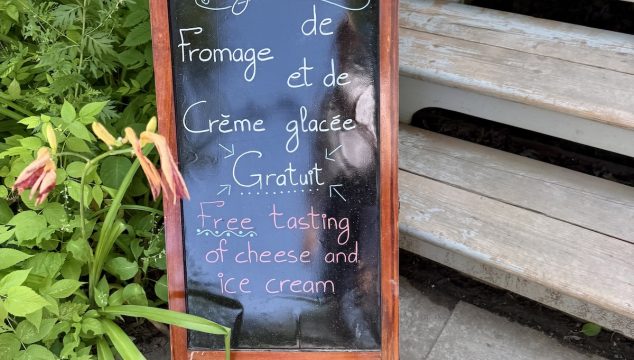 de
Fromage
et de
Crème glacée
Gratuit
Free tasting
of cheese and
ice cream